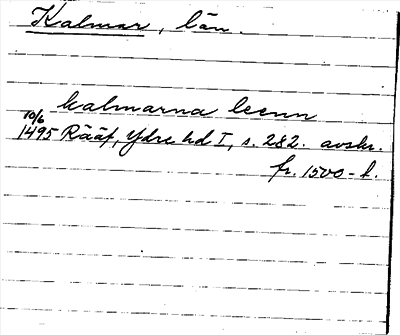 Kalmar, län.
kalmarna leenn
10/6
1495 Rääf, Ydre hd I, s. 282. avskr.
fr. 1500-t.